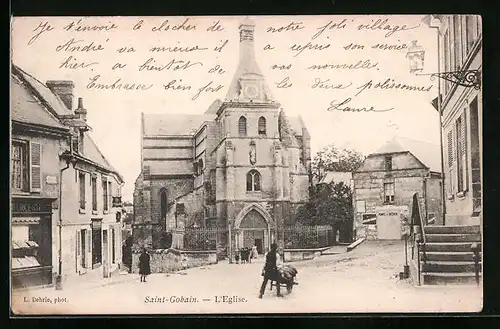 Je t'envoie le clocher de notre joli village
André va mieux il a repris son service
hier, a bientôt de vos nouvelles.
Embrasser bien fort les deux polissonnes
Laure
Saint-Gobain. — L'Eglise.
L. Dehrie, phot.